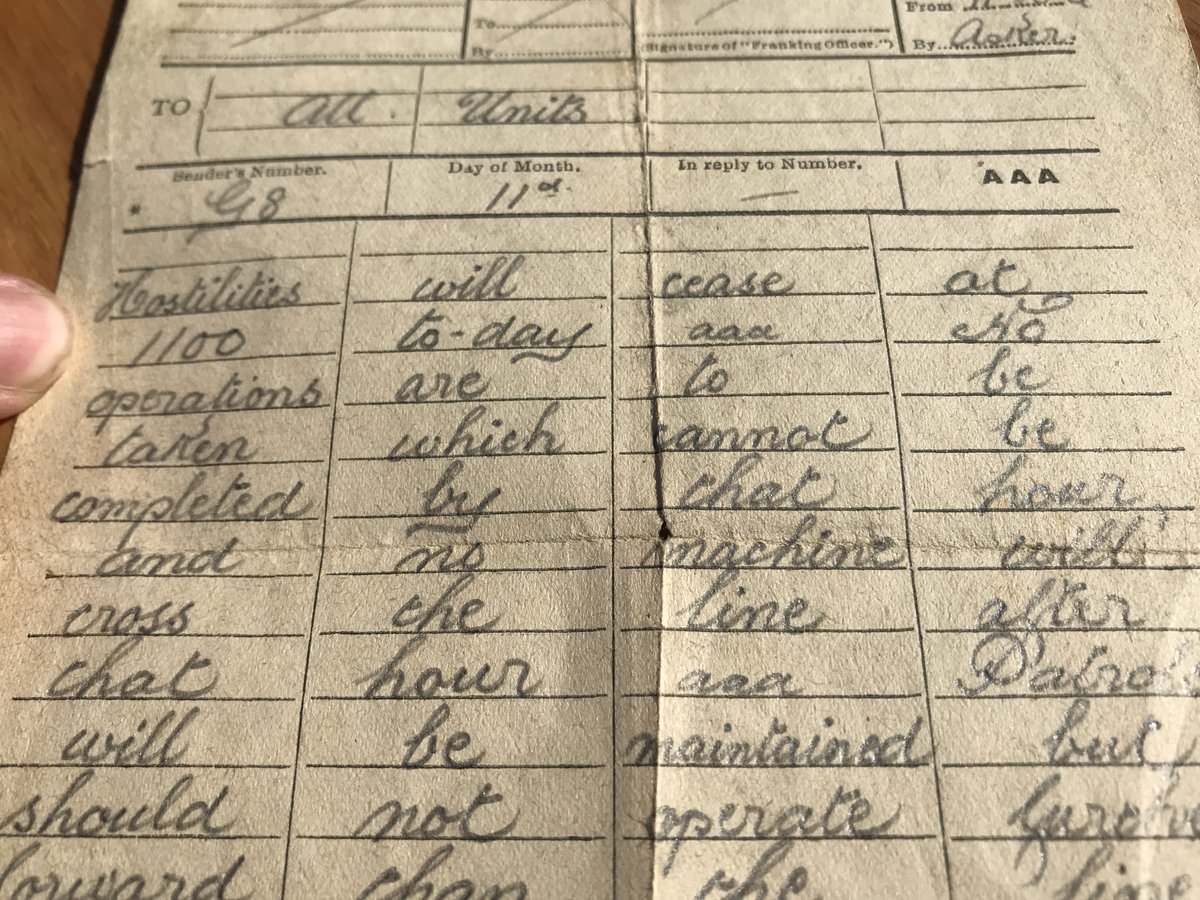 From
To
By
(Signature of "Franking Officer.") By Asker.
TO { All . Units
Sender's Number. Day of Month. In reply to Number. AAA
* G8 11th. —
Hostilities will cease at
1100 to-day aaa No
operations are to be
taken which cannot be
completed by that hour
and no machine will
cross the line after
that hour aaa Patrols
will be maintained but
should not operate
forward than the line